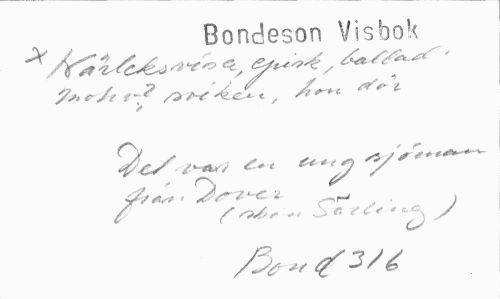 Bondeson Visbok
x Kärleksvisa, episk, ballad.
motiv?, sviken, hon dör
Det var en ung sjöman
från Dover
Särling)
Bond 316